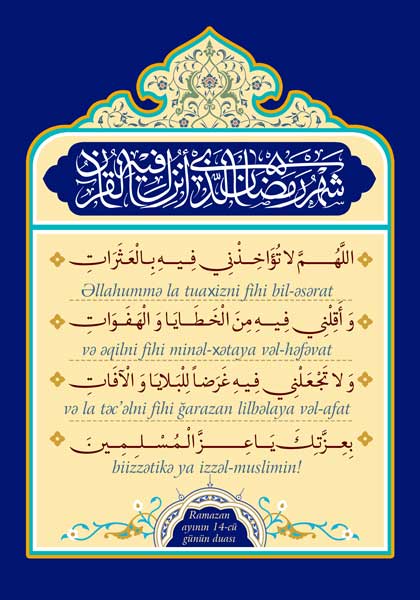 شَهْرُ رَمَضَانَ الَّذِي أُنْزِلَ فِيهِ الْقُرْآنُ
اللَّهُمَّ لا تُؤَاخِذْنِي فِيهِ بِالْعَثَرَاتِ
Əllahummə la tuaxizni fihi bil-əsərat
وَ أَقِلْنِي فِيهِ مِنَ الْخَطَايَا وَ الْهَفَوَاتِ
və əqilni fihi minəl-xətaya vəl-həfəvat
وَ لا تَجْعَلْنِي فِيهِ غَرَضاً لِلْبَلايَا وَ الْآفَاتِ
və la təc’əlni fihi ğarazan lilbəlaya vəl-afat
بِعِزَّتِكَ يَا عِزَّ الْمُسْلِمِينَ
biizzətikə ya izzəl-muslimin!
Ramazan
ayının 14-cü
günün duası